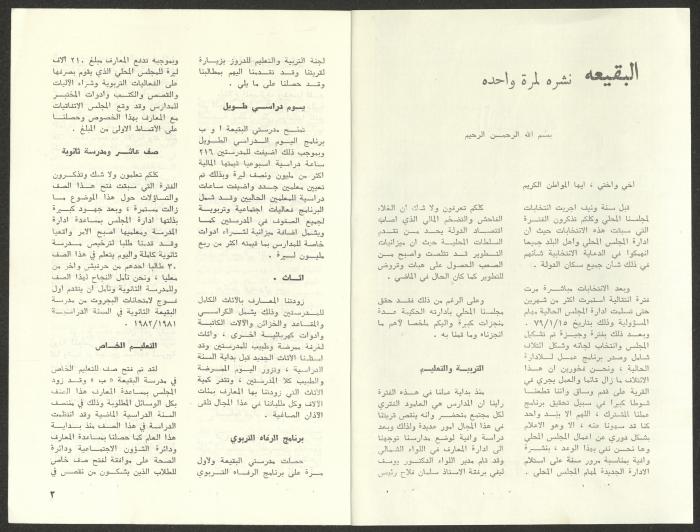 البقيعه نشره لمرة واحده
بسم الله الرحمن الرحيم
اخي واختي ، ايها المواطن الكريم
قبل سنة ونيف اجريت انتخابات
لمجلسنا المحلي وكلكم تذكرون الفترة
التي سبقت هذه الانتخابات حيث ان
ادارة المجلس المحلي واهل البلد جميعا
انهمكوا في الدعاية الانتخابية شأنهم
في ذلك شأن جميع سكان الدولة .
وبعد الانتخابات مباشرة مرت
فترة انتقالية استمرت اكثر من شهرين
حتى تسلمت ادارة المجلس الحالية مهام
المسؤولية وذلك بتاريخ ٧٩/١/١٥
وبعد ذلك بفترة وجيزة تم تشكيل
المجلس وانتخاب لجانه وشكل ائتلاف
شامل وصدر برنامج عمل للادارة
الحالية ، ونحن فخورين ان هذا
الائتلاف ما زال قائما والعمل يجري في
القرية على قدم وساق واننا قطعنا
شوطا كبيرا في سبيل تحقيق برنامج
عملنا المشترك ، اللهم الا بند واحد
كنا قد سهونا عنه ، الا وهو الاعلام
بشكل دوري عن اعمال المجلس المحلي
وها نحن نفي بهذا الوعد ، بنشرة
وافية بمناسبة مرور سنة على استلام
الادارة الجديدة لمهام المجلس المحلي .
كلكم تعرفون ولا شك ان الغلاء
الفاحش والتضخم المالي الذي اصاب
اقتصاد الدولة يحد من تقدم
السلطات المحلية حيث ان ميزانيات
التطوير قد تقلصت واصبح من
الصعب الحصول على هبات وقروض
للتطوير كما كان الحال في الماضي .
وعلى الرغم من ذلك فقد حقق
مجلسنا المحلي بادارته الحكيمة عدة
منجزات كبيرة واليكم ملخصا لاهم ما
انجزناه وما قمنا به .
التربية والتعليم
منذ بداية عملنا في هذه الفترة
رأينا ان المدارس هي العامود الفقري
لكل مجتمع متحضر وانه ينقص قريتنا
في هذا المجال امور عديدة ولذلك وبعد
دراسة وافية لوضع مدارسنا توجهنا
الى ادارة المعارف في اللواء الشمالي
وقد قام مدير اللواء الدكتور يوسف
ليفي برفقة الاستاذ سلمان فلاح رئيس
لجنة التربية والتعليم للدروز بزيارة
لقريتنا وقد تقدمنا اليهم بمطالبنا
وقد حصلنا على ما يلي .
يوم دراسي طويل
تمنح مدرستي البقيعة أ و ب
برنامج اليوم الدراسي الطويل
وبموجب ذلك اضيفت للمدرستين ٢١٦
ساعة دراسية اسبوعيا قيمتها المالية
اكثر من مليون ونصف ليرة وبذلك تم
تعيين معلمين جدد واضيفت ساعات
دراسية للمعلمين الحاليين وقد شمل
البرنامج فعاليات اجتماعية وتربوية
لجميع الصفوف في المدرستين كما
ويشمل اضافة ميزانية لشراء ادوات
خاصة للمدارس بما قيمته اكثر من ربع
مليون ليرة .
اثاث .
زودتنا المعارف بالاثاث الكامل
للمدرستين وذلك يشمل الكراسي
والمقاعد والخزائن والآلات الكاتبة
وادوات كهربائية اخرى ، واثاث
لغرفة ممرضة وطبيب للمدرستين وقد
استلمنا الاثاث الجديد قبل بداية السنة
الدراسية ، وتزور اليوم الممرضة
والطبيب كلا المدرستين ، وتقدر كمية
الاثاث التي زودتنا بها المعارف بمئات
الآلاف وكل طلباتنا في هذا المجال تلقى
الآذان الصاغية .
برنامج الرفاه التربوي
حصلت مدرستي البقيعة ولاول
مرة على برنامج الرفاه التربوي
وبموجبه تدفع المعارف مبلغ ٢١٠ آلاف
ليرة للمجلس المحلي الذي يقوم بصرفها
على الفعاليات التربوية وشراء الآليات
والقصص والكتب وادوات المختبر
للمدارس وقد وقع المجلس الاتفاقيات
مع المعارف بهذا الخصوص وحصلنا
على الاقساط الاولى من المبلغ .
صف عاشر ومدرسة ثانوية
كلكم تعلمون ولا شك وتذكرون
الفترة التي سبقت فتح هذا الصف
والتساؤلات حول هذا الموضوع ما
زالت مستمرة ، وبعد جهود كبيرة
بذلتها ادارة المجلس بمساعدة ادارة
المدرسة ومعلميها اصبح الامر واقعيا
وقد قدمنا طلبا لترخيص مدرسة
ثانوية كاملة واليوم يتعلم في هذا الصف
٣٠ طالبا احدهم من حرفيش وآخر من
معليا ، ونحن نأمل النجاح لهذا الصف
وللمدرسة الثانوية ونأمل ان يتقدم اول
فوج لامتحانات البجروت من مدرسة
البقيعة الثانوية في السنة الدراسية
١٩٨٢/١٩٨١ .
التعليم الخاص
لقد تم فتح صف للتعليم الخاص
في مدرسة البقيعة « ب » وقد زود
المجلس بمساعدة المعارف هذا الصف
بكل الوسائل المطلوبة وذلك في منتصف
السنة الدراسية الماضية وقد انتظمت
الدراسة في هذا الصف منذ بداية
هذا العام كما حصلنا بمساعدة المعارف
ودائرة الشؤون الاجتماعية ودائرة
الصحة على موافقة لفتح صف خاص
للطلاب الذين يشكون من نقص في
٣